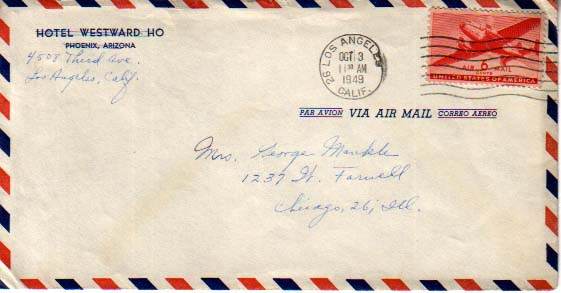 HOTEL WESTWARD HO
PHOENIX, ARIZONA
4508 Third Ave.
Los Angeles, Calif.
26 LOS ANGELES
OCT 3
11 30 AM
1949
CALIF.
AIR 6 MAIL
CENTS
UNITED STATES OF AMERICA
PAR AVION VIA AIR MAIL CORREO AEREO
Mrs. George Mankle
1237 W. Farwell
Chicago, 26, Ill.